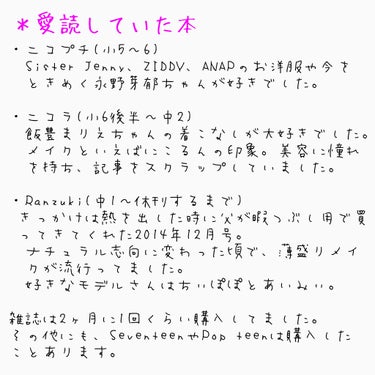 ＊愛読していた本
・ニコプチ(小5〜6)
Sister Jenny、ZIDDY、ANAPのお洋服や今を
ときめく永野芽郁ちゃんが好きでした。
・ニコラ(小6後半〜中2)
飯豊まりえちゃんの着こなしが大好きでした。
メイクといえばにこるんの印象。美容に憧れ
を持ち、記事をスクラップしていました。
・Ranzuki(中1〜休刊するまで)
きっかけは熱を出した時に父が暇つぶし用で買
ってきてくれた2014年12月号。
ナチュラル志向に変わった頃で、薄盛りメイ
クが流行ってました。
好きなモデルさんはちぃぽぽとあいみぃ。
雑誌は2ヶ月に1回くらい購入してました。
その他にも、SeventeenやPop teenは購入した
ことあります。